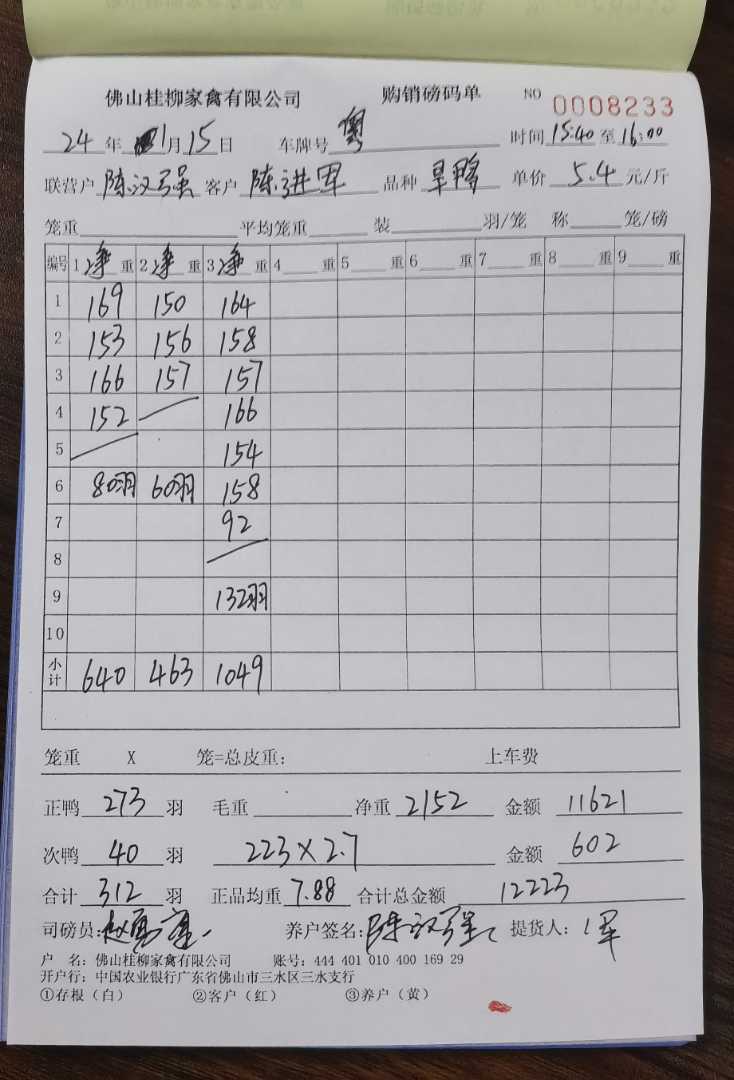 佛山桂柳家禽有限公司 购销磅码单 NO 0008233
24 年 1 月 15 日 车牌号 粤 时间 15:40 至 16:00
联营户 陈汉强 客户 陈进军 品种 旱鸭 单价 5.4 元/斤
笼重 平均笼重 装 羽/笼 称 笼/磅
编号 1 净 重 2 净 重 3 净 重 4 重 5 重 6 重 7 重 8 重 9 重
1 169 150 164
2 153 156 158
3 166 157 157
4 152 166
5 154
6 80羽 60羽 158
7 92
8
9 132羽
10
小计 640 463 1049
笼重 X 笼=总皮重: 上车费
正鸭 273 羽 毛重 净重 2152 金额 11621
次鸭 40 羽 223×2.7 金额 602
合计 312 羽 正品均重 7.88 合计总金额 12223
司磅员: 养户签名: 陈汉强 提货人: 军
户 名: 佛山桂柳家禽有限公司 账号: 444 401 010 400 169 29
开户行: 中国农业银行广东省佛山市三水区三水支行
①存根(白) ②客户(红) ③养户(黄)